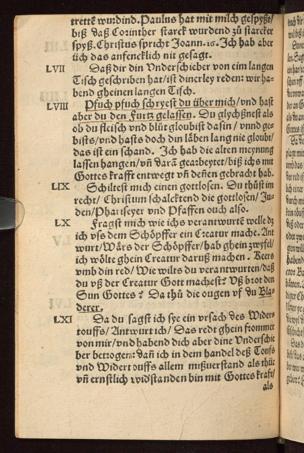 trettē wurdind. Paulus hat mit milch gespyßt/
biß daß Corinther starck wurdend zů starcker
spyß. Christus spricht Joann. 16. Jch hab aber
üch das anfencklich nit gesagt.
LVII Daß dir din Vnderschriber von eim langen
Tisch geschriben hat/ ist dinerley reden: wir ha-
bend gheinen langen Tisch.
LVIII Pfuch pfuch schryest du über mich/ vnd hast
aber du den Furtz gelassen. Du glychßnest als
ob du fleisch vnd blůt gloubist dasin/ vnnd ge-
bists/ vnd hasts doch din läben lang nie gloubt/
das ist ein schand. Jch hab die alten meynung
lassen hangen/ vñ darā gearbeytet/ biß ichs mit
Gottes krafft entwegt vñ denen gebracht hab.
LIX Schiltest mich einen gottlosen. Du thůst im
recht/ Christum schalcktend die gottlosen/ Ju-
den/ Phariseyer vnd Pfaffen ouch also.
LX Fragst mich wie ichs verantwurtē welle dz
ich vß dem Schöpffer ein Creatur mache. Ant
wurt/ Wärs der Schöpffer/ hab ghein zwyfel/
ich wölte ghein Creatur daruß machen. Keers
vmb din red/ Wie wilts du verantwurten/ daß
du vß der Creatur Gott machest? Vß brot den
Sun Gottes? Da thů die ougen vf du Bla-
derer.
LXI Da du sagst ich sye ein vrsach des Wider
touffs/ Antwurt ich/ Das redt ghein frommer
von mir/ vnd habend dich aber dine Vnderschri
ber betrogen: dañ ich in dem handel deß Touffs
vnd Widertouffs allem mißuerstand als thür
vñ ernstlich widstanden bin mit Gottes krafft/
als